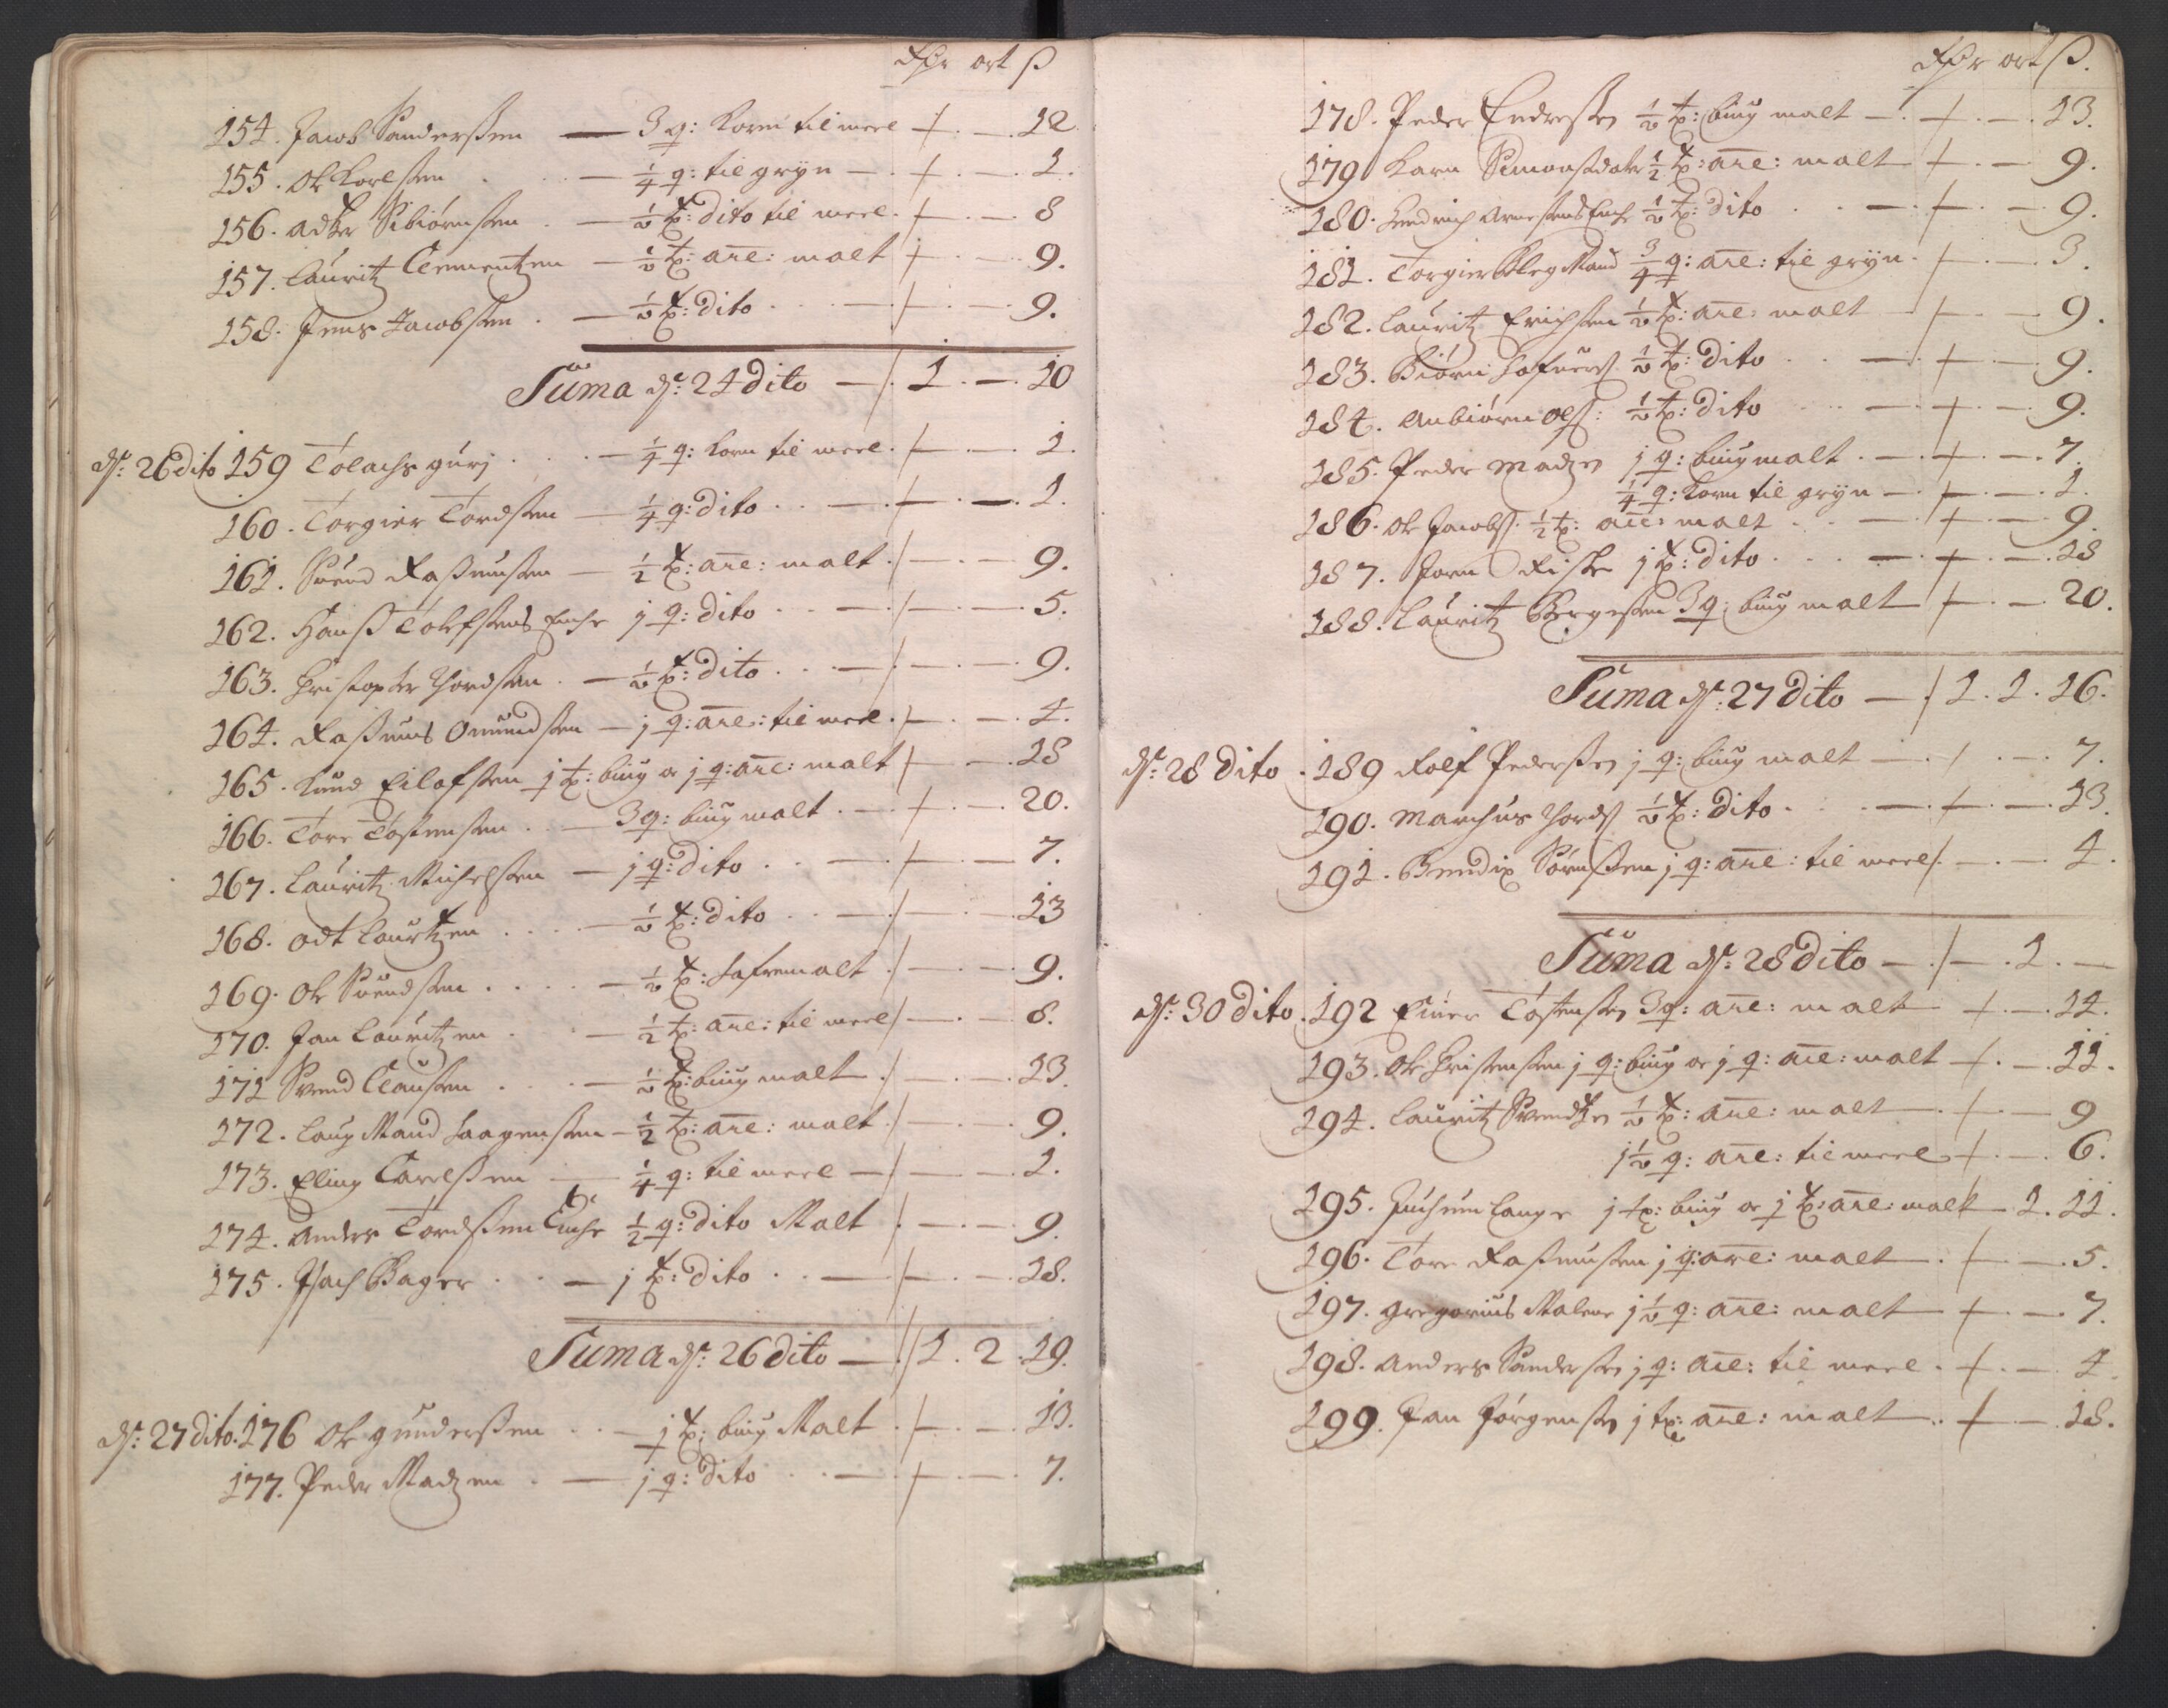 Rdr ort ß
154. Jacob Sanderßen — 3 q: Korn til meel — 12
155. Ole Korlsen — ¼ q: til gryn — 1.
156. Sibiørnsen — ½ tø: dito til meel. — 8
157. Lauritz Clementzen — ½ tø: are: malt — 9.
158. Jens Jacobsen — ½ tø: dito — 9.
Suma ds: 24 dito — 1 — 10
ds: 26 dito 159 Tolachs gurj — ¼ q: Korn til meel. — 1.
160. Torgier Tordsen — ¼ q: dito — 1.
161. Svend Rasmusen — ½ tø: are: malt — 9.
162. Hanß Tolefsens Enche j q: dito — 5.
163. Christopher Thordsen — ½ tø: dito — 9.
164. Rasmus Omundsen — j q: are: til meel. — 4.
165. Knud Eilofsen j tø: biug oc j q: are: malt — 18
166. Tore Tostensen — 3 q: biug malt — 20.
167. Lauritz Michelsen — j q: dito — 7.
168. Odt Lauritzen — ½ tø: dito — 13
169. Ole Svendsen — ½ tø: hafremalt — 9.
170. Jan Lauritzen — ½ tø: are: til meel — 8.
171 Svend Clausen — ½ tø: biug malt — 13.
172. Laug Mand Haagensen — ½ tø: are: malt — 9.
173. Eling Carelßen — ¼ q: til meel — 1.
174. Anders Tordßen Enche ½ q: dito Malt — 9.
175. Isach Bager — j tø: dito — 18.
Suma ds: 26 dito — 1. 2. 19.
ds: 27 dito. 176 Ole gunderßen — j tø: biug Malt — 13.
177. Peder Madzen — j q: dito — 7.
Rdr ort ß.
178. Peder Endreßen ½ tø: biug malt — 13.
179 Karn Simonsdater ½ tø: are: malt — 9.
180. Hendrich Arnesens Enche ½ tø: dito — 9.
181. Torgier Mand ¾ q: are: til gryn. — 3.
182. Lauritz Erichsen ½ tø: are: malt — 9.
183. Biørn ½ tø: dito — 9.
184. Anbiørn Ols: ½ tø: dito — 9.
185. Peder Madzen j q: biug malt — 7.
¼ q: Korn til gryn — 1.
186. Ole Jacobs. ½ tø: are: malt — 9.
187. j tø: dito — 18
188. Lauritz Børgesen 3 q: biug malt — 20.
Suma ds: 27 dito — 1. 1. 16.
ds: 28 dito. 189 Rolf Pederßen j q: biug malt — 7.
190. Marchus Thords ½ tø: dito — 13.
191. Bendix Sørnßen j q: are: til meel — 4.
Suma ds: 28 dito — 1. —
ds: 30 dito. 192 Einer Tostensen 3 q: are: malt — 14.
193. Ole Christensen j q: biug oc j q: are: malt — 11.
194. Lauritz Svendsen ½ tø: are: malt — 9
j½ q: are: til meel — 6.
195. Jochum Lange j tø: biug oc j tø: are: malt — 1. 11.
196. Tore Rasmusen j q: are: malt — 5.
197. Gregorius Malene j½ q: are: malt — 7.
198. Anders Sandersen j q: are: til meel. — 4.
199. Jan Jørgensen j tø: are: malt — 18.